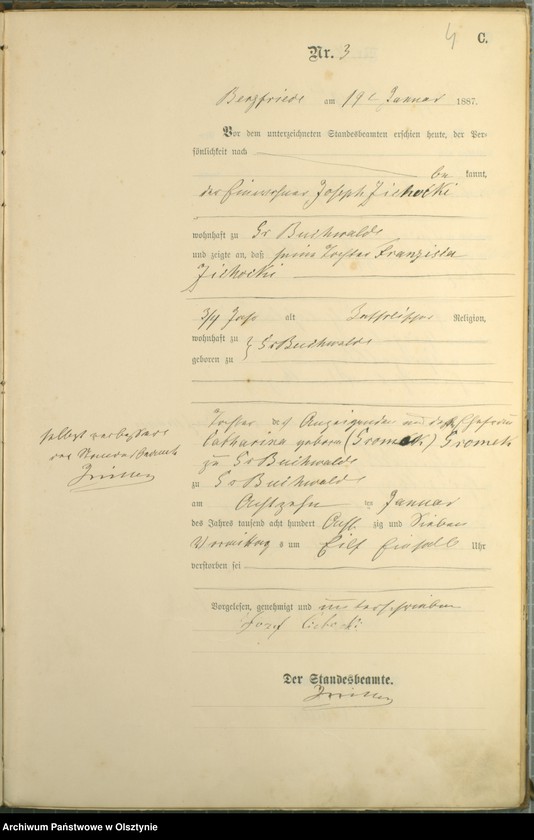 4
C.
Nr. 3
Bergfriede am 19ten Januar 1887.
Vor dem unterzeichneten Standesbeamten erschien heute, der Per-
sönlichkeit nach
bekannt,
der Einwohner Joseph Zichocki
wohnhaft zu Gr Buchwalde
und zeigte an, daß seine Tochter Franziska
Zichocki
3/4 Jahr alt Katholischer Religion,
wohnhaft zu Gr Buchwalde
geboren zu
Tochter des Anzeigenden und dessen Ehefrau
Catharina geborene (Gromek) Gromek
zu Gr Buchwalde
zu Gr Buchwalde
am Achtzehn ten Januar
des Jahres tausend acht hundert Acht zig und Sieben
Vormittag s um Eilf einhalb Uhr
verstorben sei
Selbst verbessert
der Standesbeamte
Vorgelesen, genehmigt und unterschrieben
Jozef
Der Standesbeamte.
Archiwum Państwowe w Olsztynie